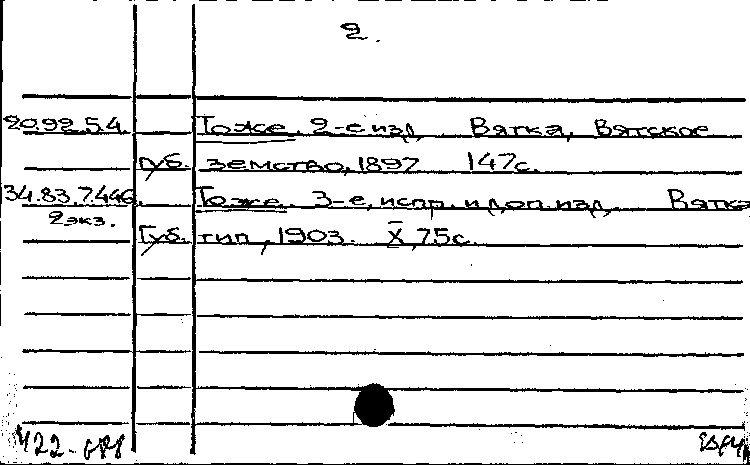 2.
20.92.5.4. Тоже. 2-е изд. Вятка, Вятское
губ. земство, 1897 147с.
34.83.7.446. Тоже. 3-е, испр. и доп. изд. Вятка
2экз.
Губ. тип., 1903. X, 75с.
422-